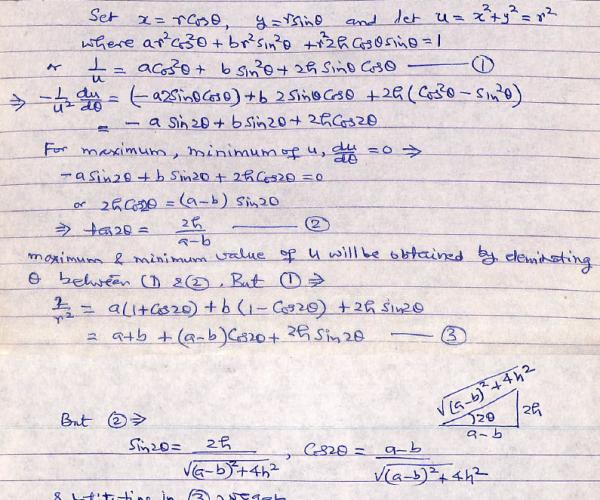 Set x = rcosθ, y = rsinθ and let u = x²+y² = r²
where ar²cos²θ + br²sin²θ + r²2h cosθ sinθ = 1
or 1/u = acos²θ + b sin²θ + 2h sinθ cosθ —— ①
⇒ -1/u² du/dθ = (-a2sinθcosθ) + b 2sinθcosθ + 2h(cos²θ - sin²θ)
= -a sin2θ + b sin2θ + 2h cos2θ
For maximum, minimum of u, du/dθ = 0 ⇒
-a sin2θ + b sin2θ + 2h cos2θ = 0
or 2h cos2θ = (a-b) sin2θ
⇒ tan2θ = 2h/(a-b) —— ②
maximum & minimum value of u will be obtained by eleminating
θ between (1) & (2). But ① ⇒
2/r² = a(1+cos2θ) + b(1-cos2θ) + 2h sin2θ
= a+b + (a-b)cos2θ + 2h sin2θ —— ③
√(a-b)²+4h²
2h
2θ
a-b
But ② ⇒
sin2θ = 2h/√(a-b)²+4h², cos2θ = a-b/√(a-b)²+4h²